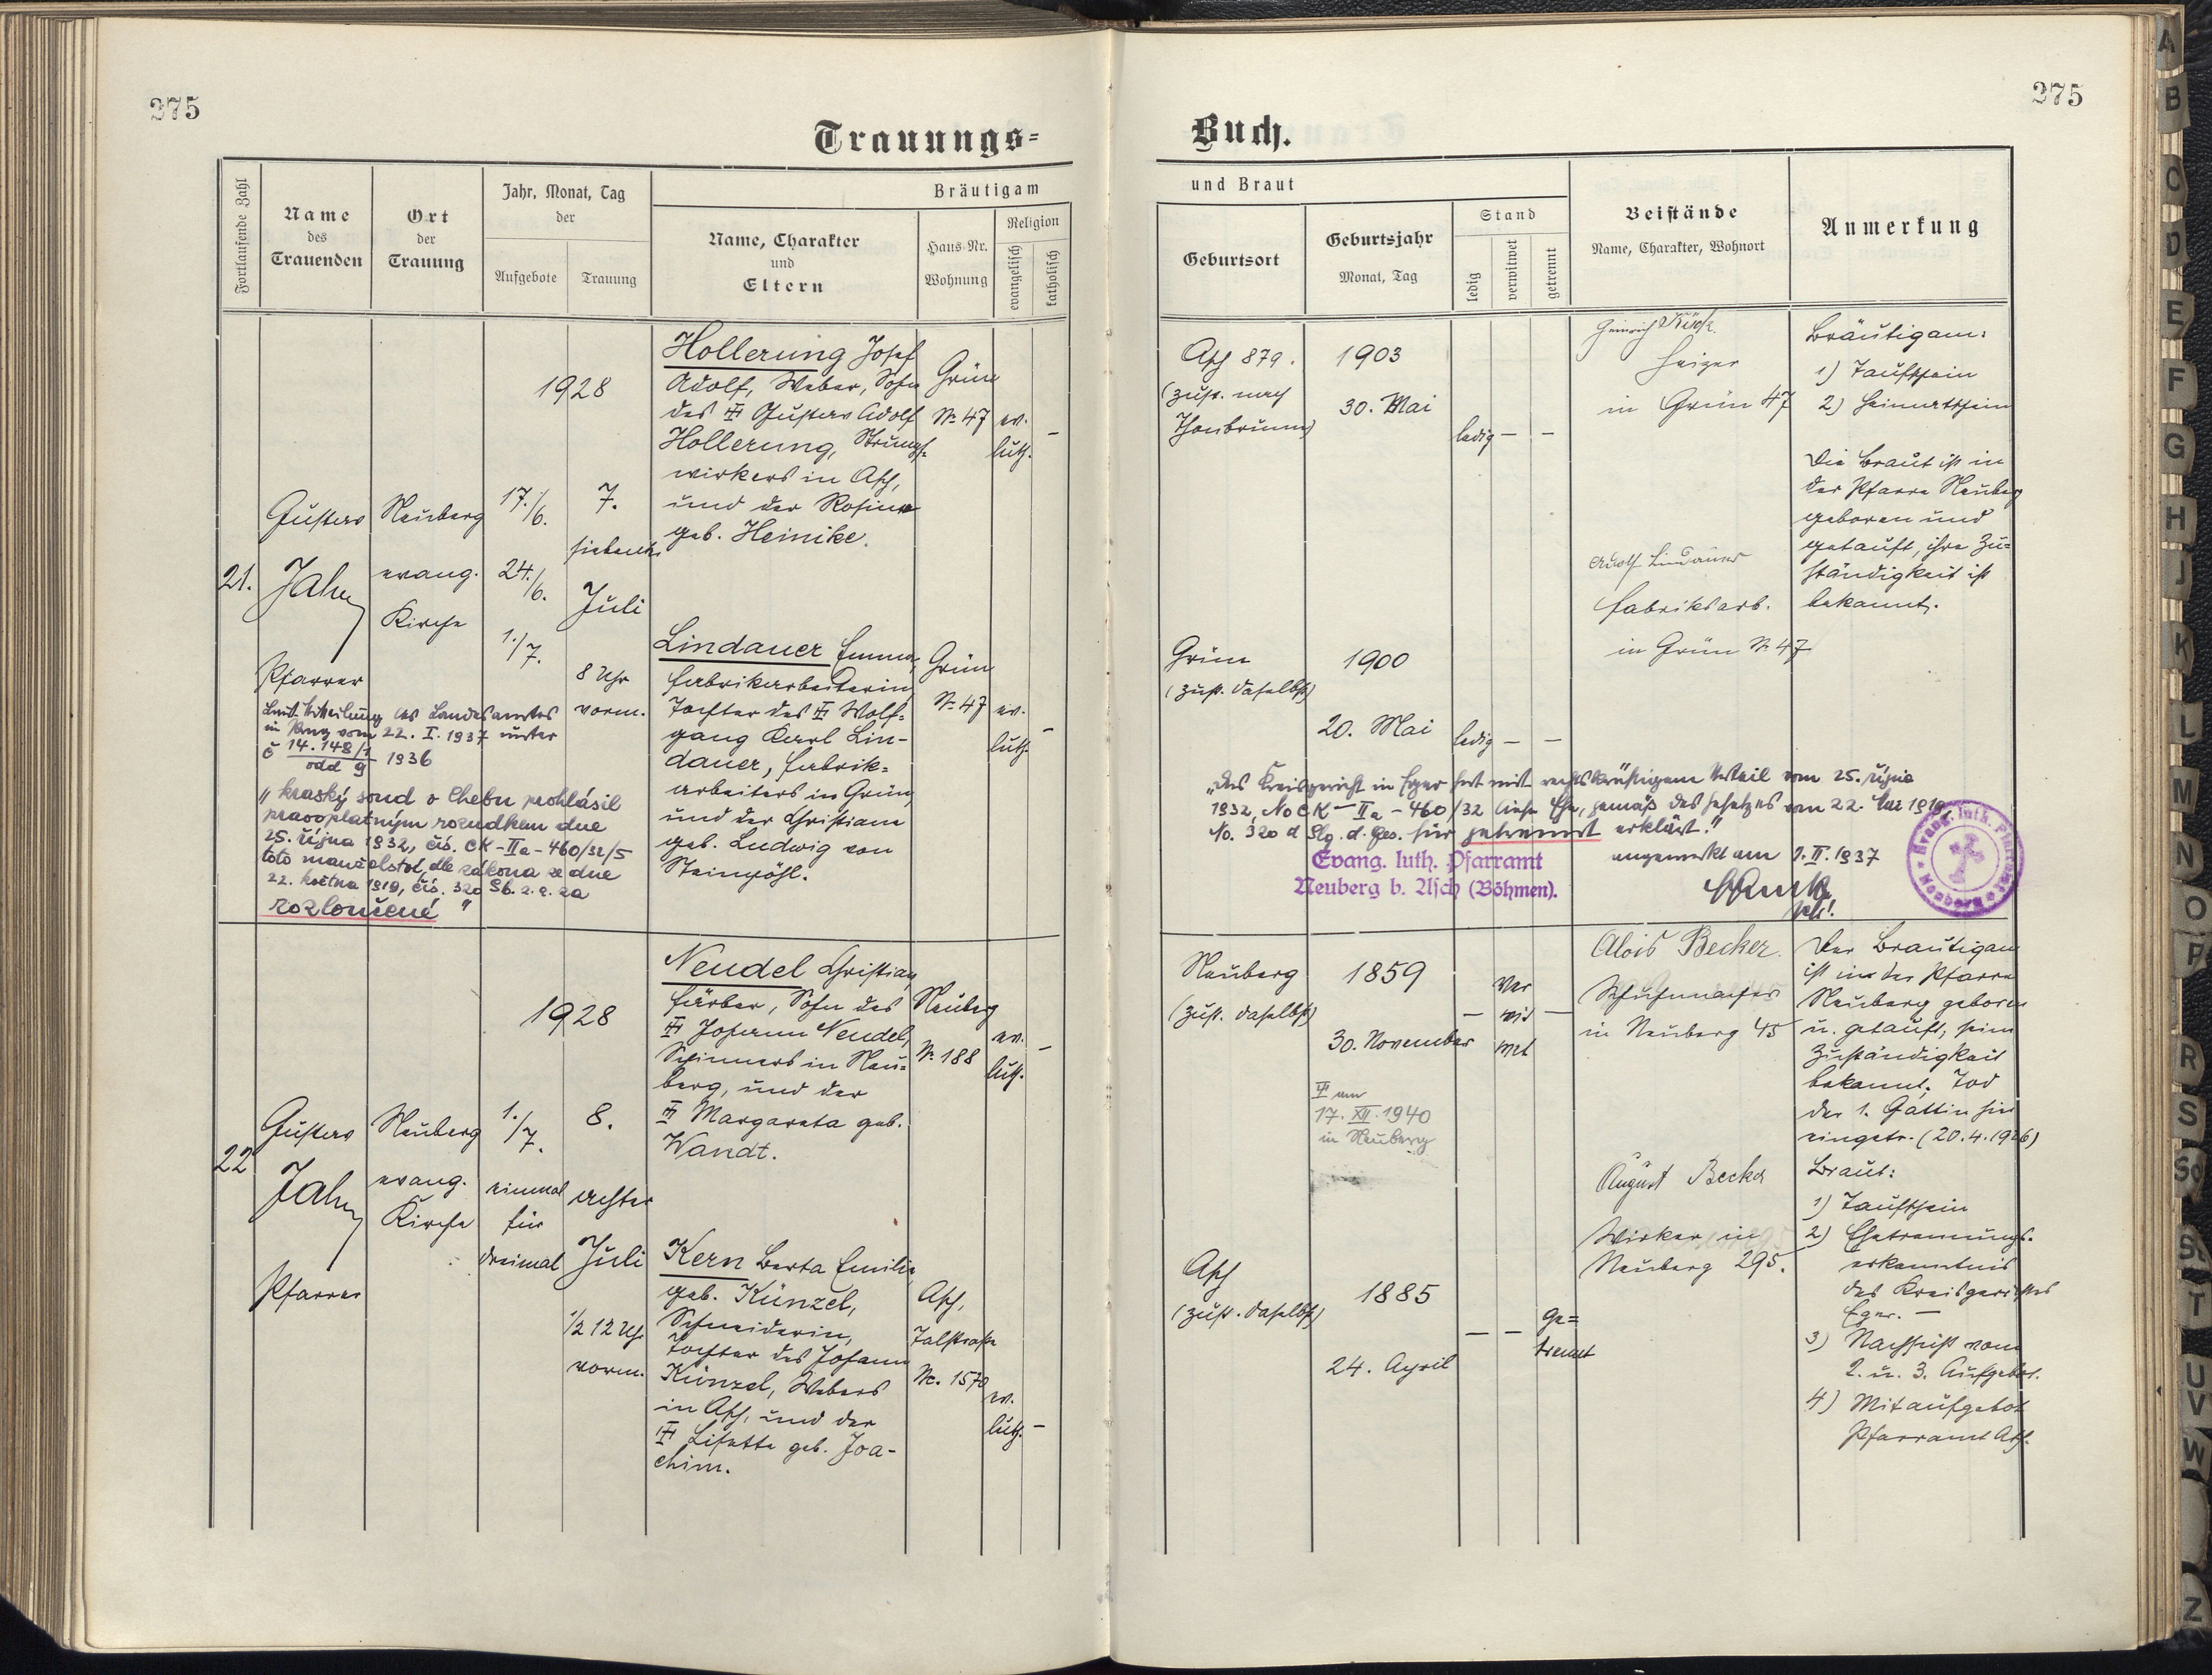 275
275
Trauungs-
Buch.
Fortlaufende Zahl
Name
des
Trauenden
Ort
der
Trauung
Jahr, Monat, Tag
der
Aufgebote
Trauung
Bräutigam
Name, Charakter
und
Eltern
Haus-Nr.
Wohnung
Religion
evangelisch
katholisch
und Braut
Geburtsort
Geburtsjahr
Monat, Tag
Stand
ledig
verwitwet
getrennt
Beistände
Name, Charakter, Wohnort
Anmerkung
21.
Gustav
Jahn
Pfarrer
Neuberg
evang.
Kirche
1928
17./6.
24./6.
1./7.
7.
siebenter
Juli
8 Uhr
vorm.
Hollerung Josef
Adolf, Weber, Sohn
des Gustav Adolf
Hollerung, Strumpf-
wirkers in Asch,
und der Rosina
geb. Heinike.
Grün
№ 47
ev.
luth.
–
Lindauer Emma,
Fabrikarbeiterin
Tochter des Wolf-
gang Karl Lin-
dauer, Fabrik-
arbeiters in Grün,
und der Christiane
geb. Ludwig von
Steinpöhl.
Grün
№ 47
ev.
luth.
–
Laut Mitteilung des Landesamtes
in Prag vom 22. I. 1937 unter
č 14.148/1 odd 9 1936
„kraský soud v Chebu prohlásil
pravoplatným rozudkem dne
25. října 1932, čís. CK-IIa-460/32/5
toto manželství, dle zákona ze dne
22. května 1919, čís. 320 Sb. z. a. za
rozloučené"
Asch 879.
(zust. nach
Thonbrunn)
1903
30. Mai
ledig – –
Heinrich
Heizer
in Grün 47
Bräutigam:
1) Taufschein
2) Heimatschein
Die Braut ist in
der Pfarre Neuberg
geboren und
getauft, ihre Zu-
ständigkeit ist
bekannt.
Adolf Lindauer
Fabriksarb.
in Grün № 47
Grün
(zust. daselbst)
1900
20. Mai
ledig – –
„Das Kreisgericht in Eger hat mit rechtskräftigem Urteil vom 25. října
1932, No CK – IIa – 460/32 diese Ehe, gemäß des Gesetzes vom 22. Mai 1919,
No. 320 d Slg. d. Ges. für getrennt erklärt."
Evang. luth. Pfarramt
Neuberg b. Asch (Böhmen).
angemerkt am 1. II. 1937
Evang. luth. Pfarramt
Neuberg
22
Gustav
Jahn
Pfarrer
Neuberg
evang.
Kirche
1928
1./7.
einmal
für
dreimal
8.
achter
Juli
1/2 12 Uhr
vorm.
Neudel Christian,
Färber, Sohn des
Johann Neudel,
Spinners in Neu-
berg, und der
Margareta geb.
Wandt.
Neuberg
№ 188
ev.
luth.
–
Kern Berta Emilie
geb. Künzel,
Schneiderin,
Tochter des Johann
Künzel, Webers
in Asch, und der
Lisette geb. Joa-
chim.
Asch,
Talstraße
№. 1570
ev.
luth.
–
Neuberg
(zust. daselbst)
1859
30. November
– ver
wit
wet –
am
17. XII. 1940
in Neuberg
Alois Becker.
Schuhmacher
in Neuberg 45
Der Bräutigam
ist in der Pfarre
Neuberg geboren
u. getauft; seine
Zuständigkeit
bekannt. Tod
der 1. Gattin hier
eingetr. (20.4.1926)
August Becker
Wirker in
Neuberg 295.
Braut:
1) Taufschein
2) Ehetrennungs-
erkenntnis
des Kreisgerichtes
Eger. –
3) Nachsicht vom
2. u. 3. Aufgebot.
4) Mitaufgebot
Pfarramt Asch.
Asch
(zust. daselbst)
1885
24. April
– – ge=
trennt
A
B
C
D
E
F
G
H
J
K
L
M
N
O
P
R
S
Sch
St
T
U
V
W
Z